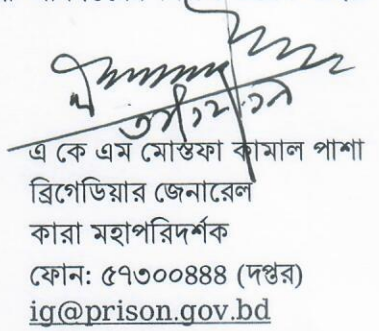 এ কে এম মোস্তফা কামাল পাশা
ব্রিগেডিয়ার জেনারেল
কারা মহাপরিদর্শক
ফোন: ৫৭৩০০৪৪৪ (দপ্তর)
ig@prison.gov.bd